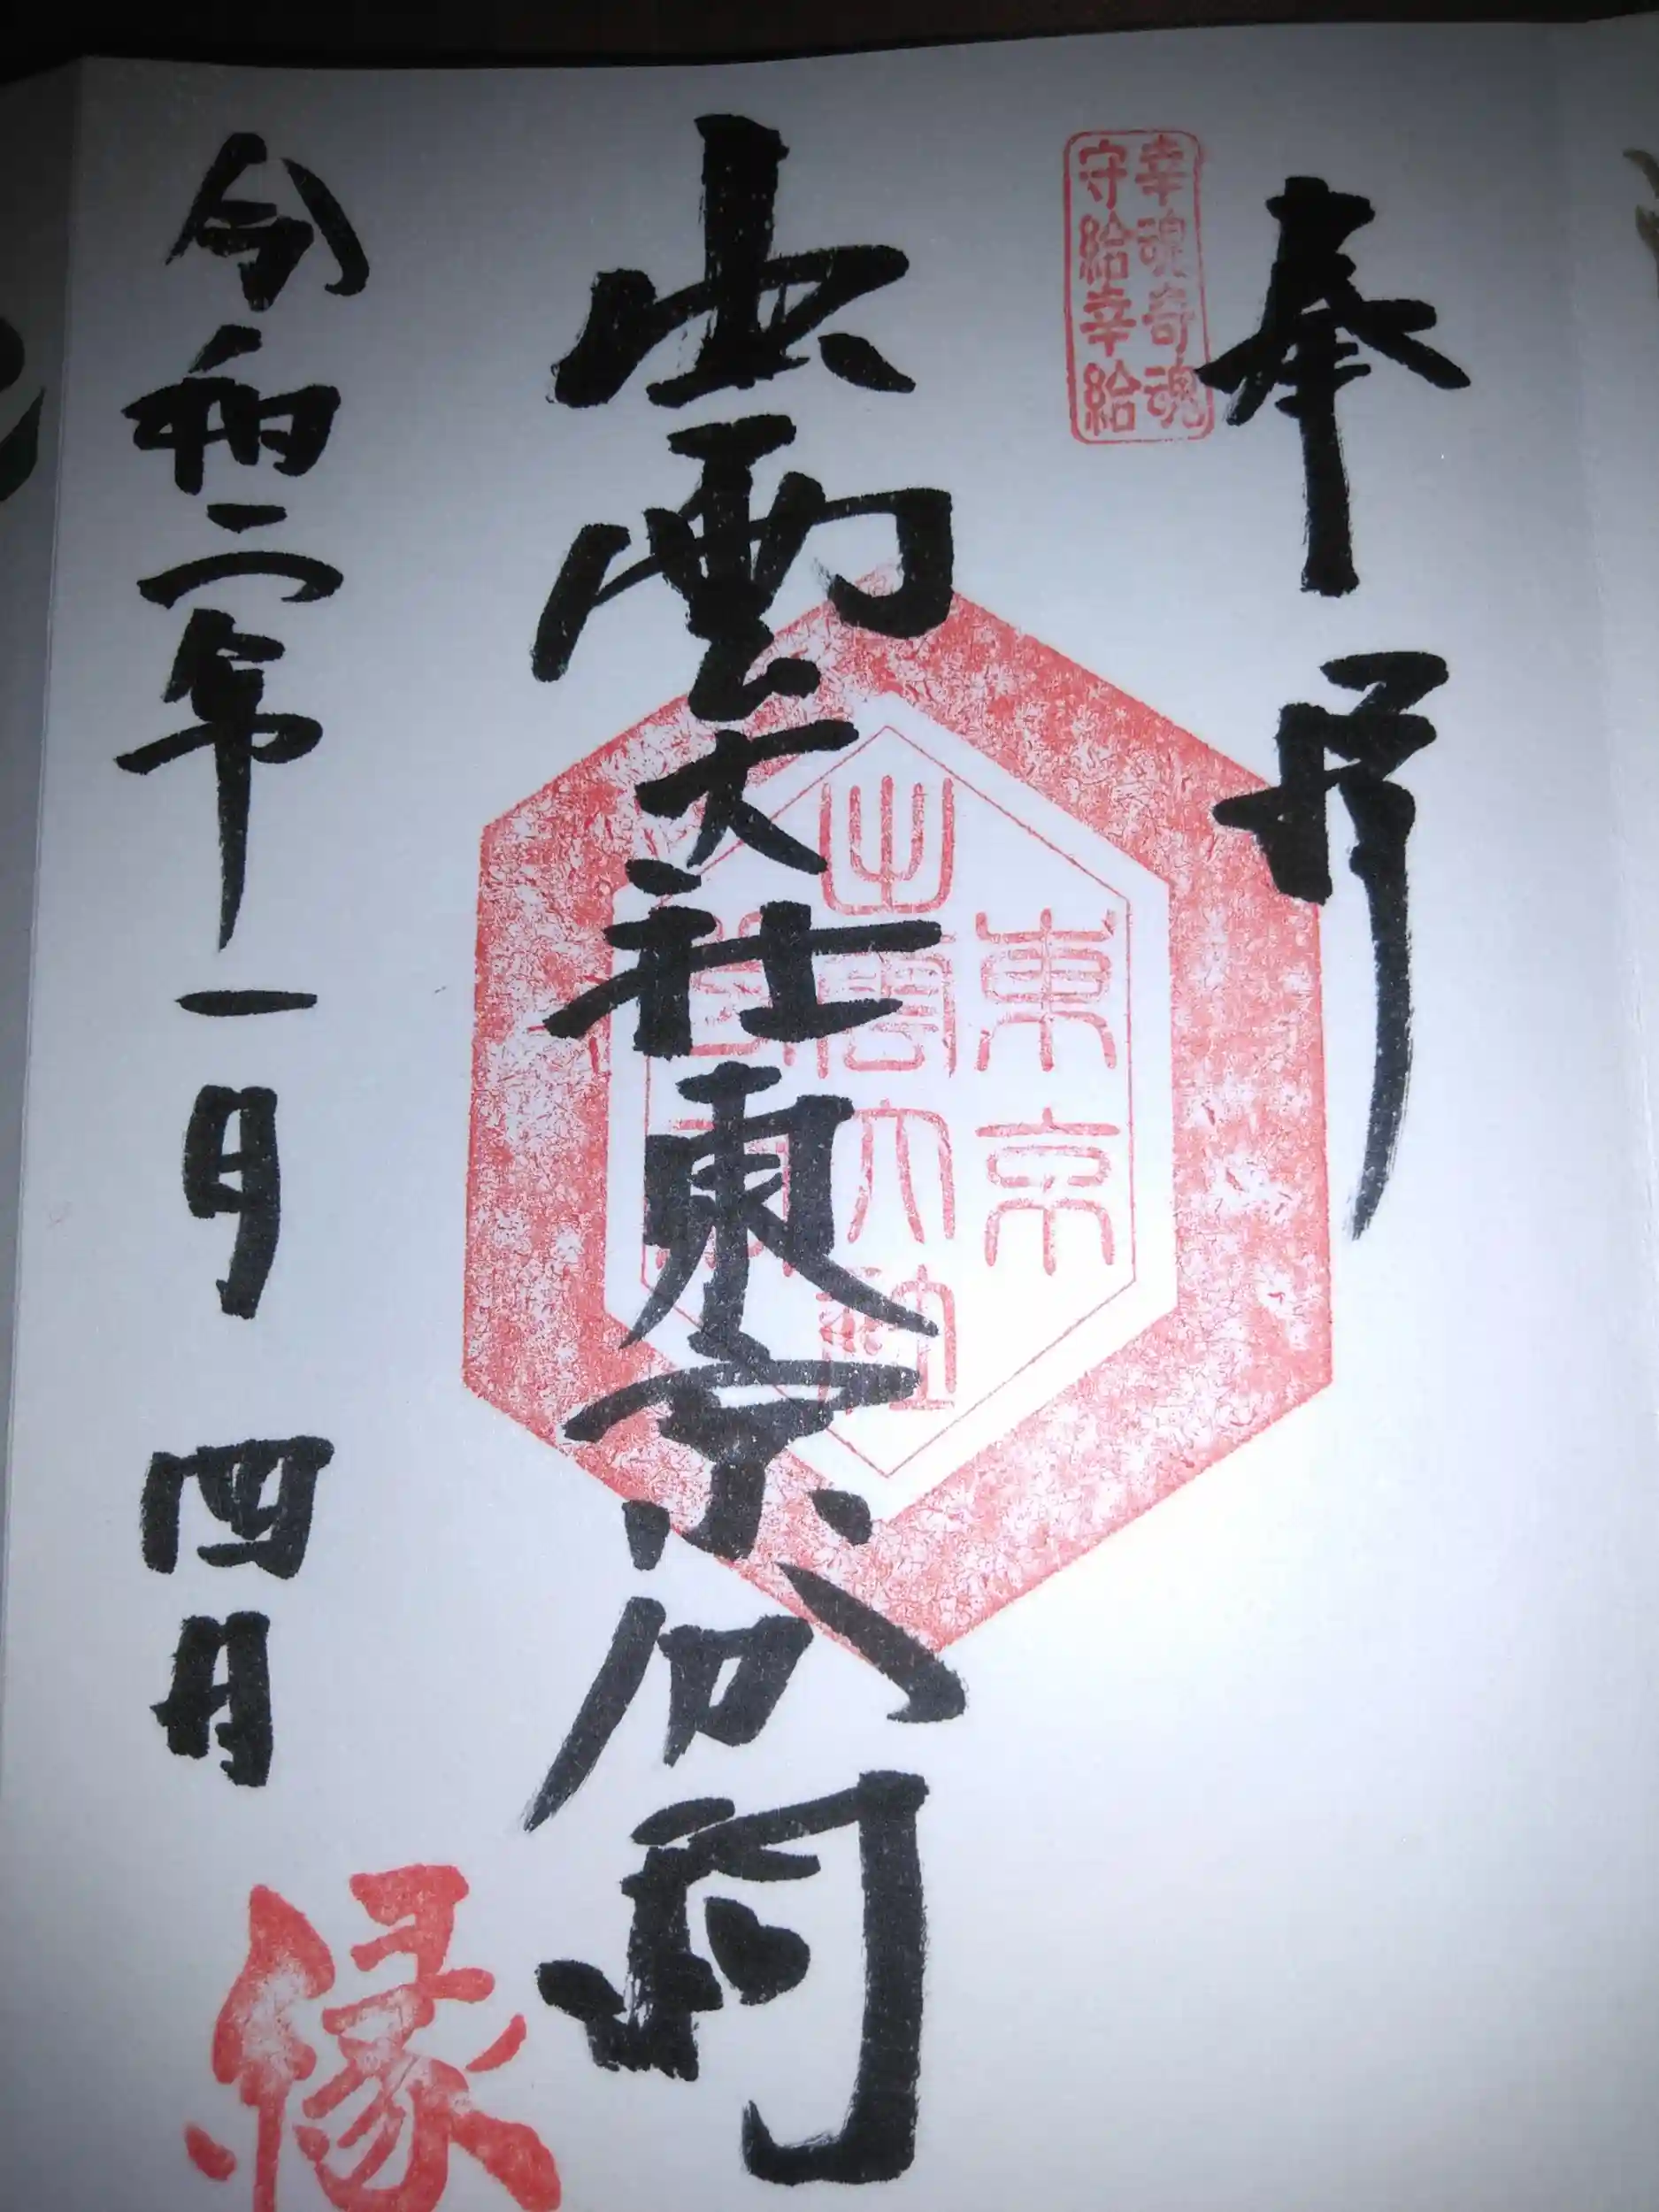 奉拝
幸魂奇魂
守給幸給
出雲大社東京分祠
東京
出雲大社
令和二年一月四日
縁